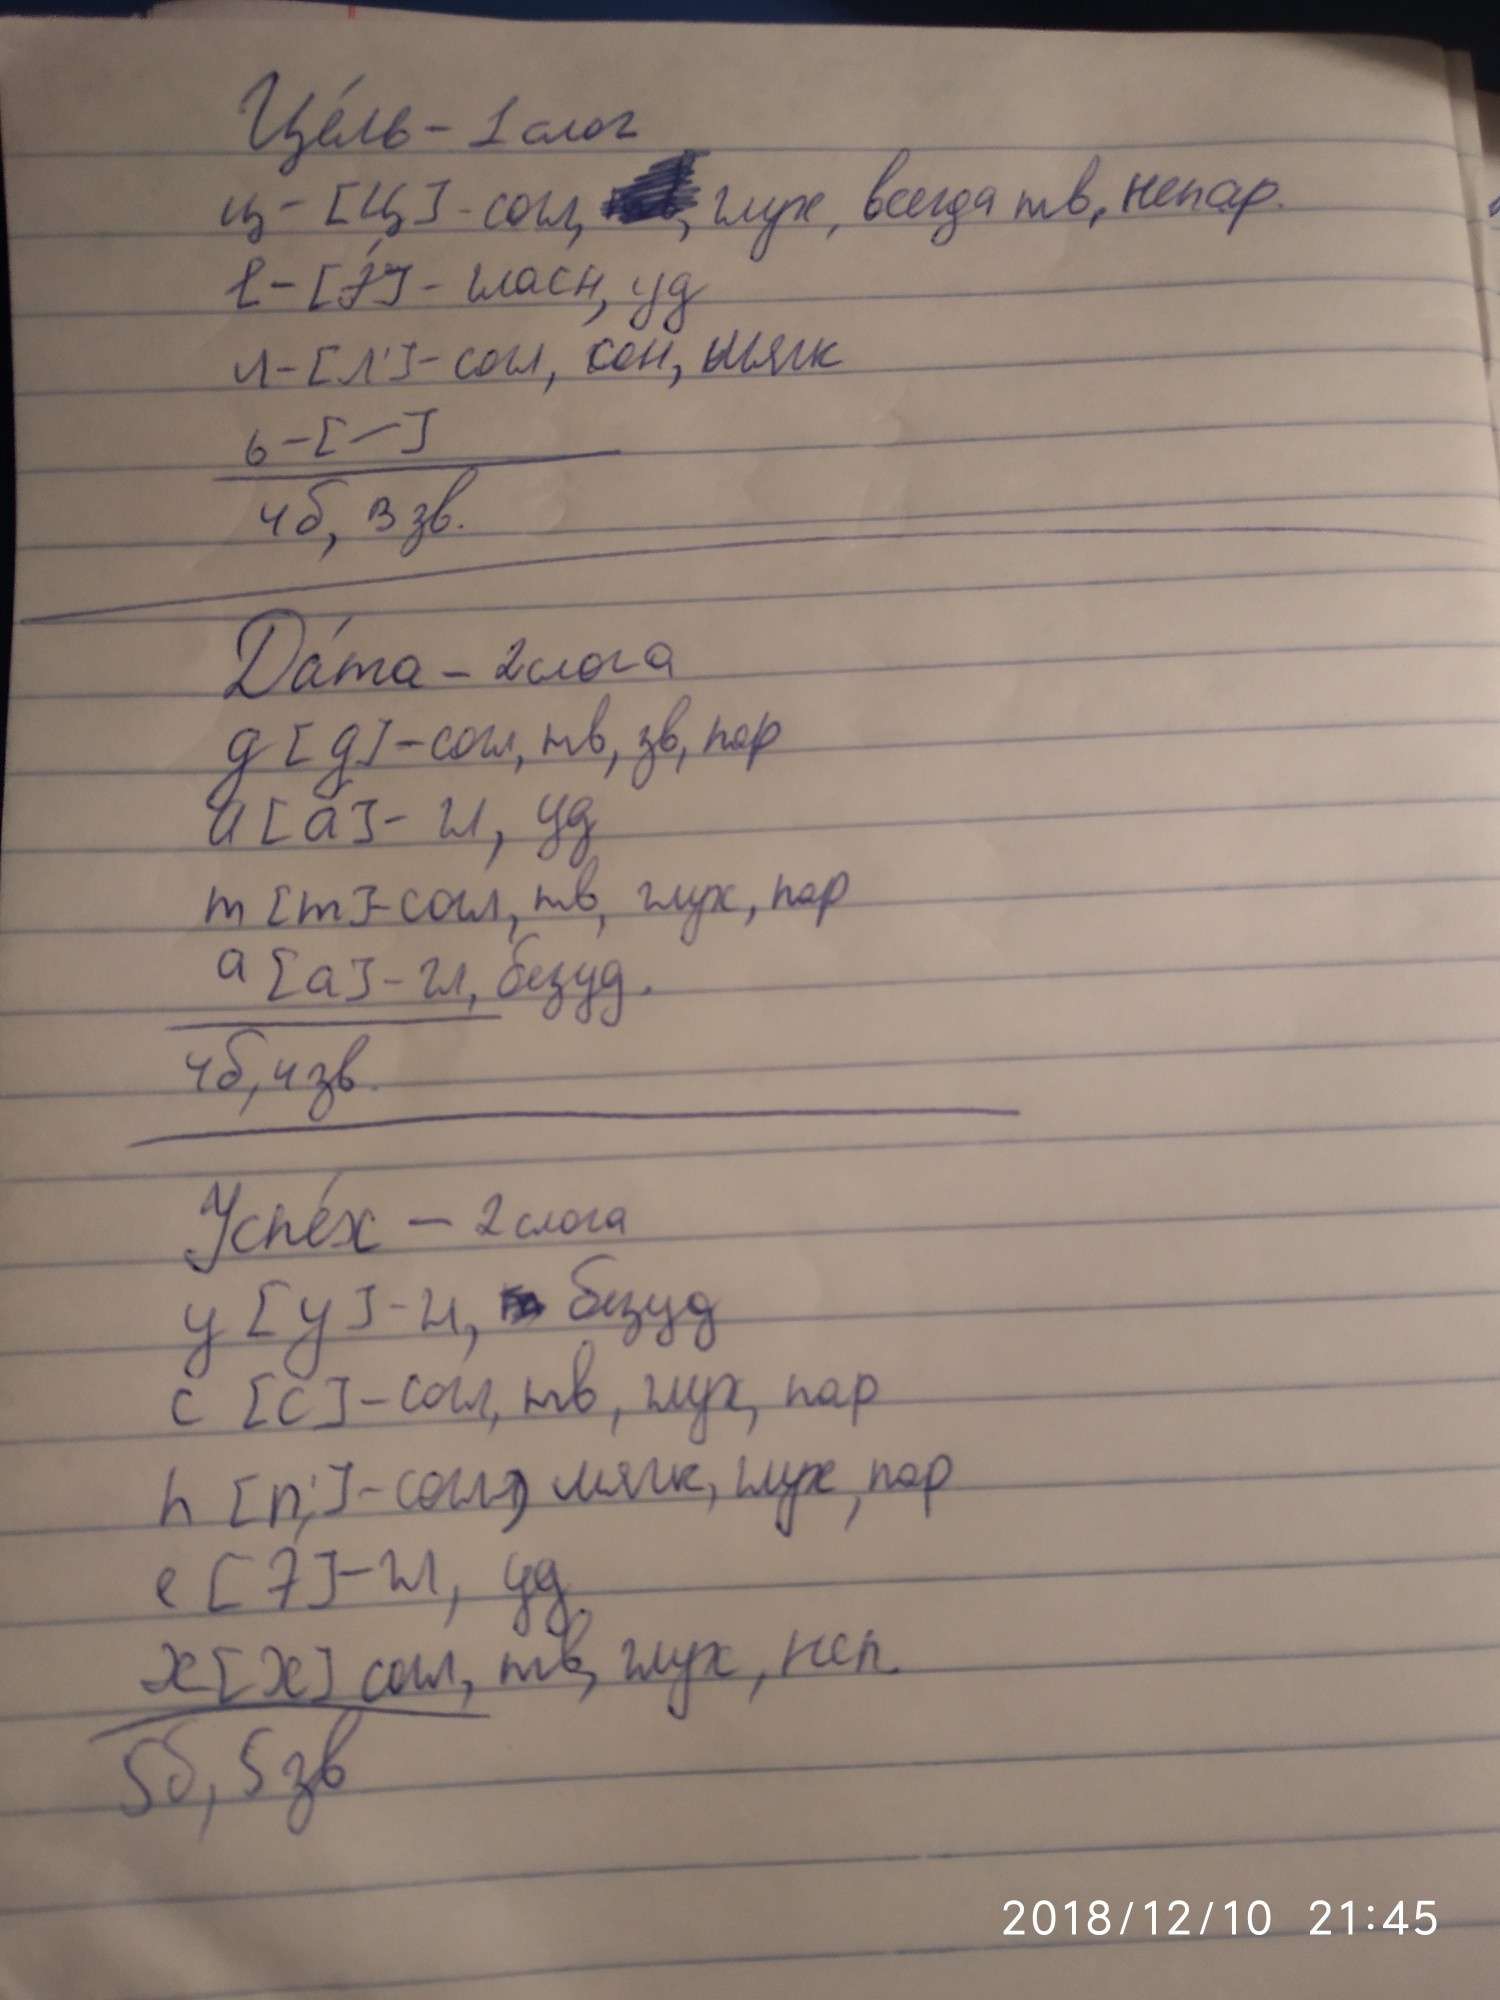 Це́ль - 1 слог
ц - [ц] - согл, глух, всегда тв, непар.
е - [э́] - гласн, уд
л - [л'] - согл, сон, мягк
ь - [-]
4б, 3 зв.
Да́та - 2 слога
д [д] - согл, тв, зв, пар
а [а́] - гл, уд
т [т] - согл, тв, глух, пар
а [а] - гл, безуд.
4б, 4 зв.
Успе́х - 2 слога
у [у] - гл, безуд
с [с] - согл, тв, глух, пар
п [п'] - согл, мягк, глух, пар
е [э́] - гл, уд.
х [х] согл, тв, глух, неп.
5б, 5 зв
2018/12/10 21:45